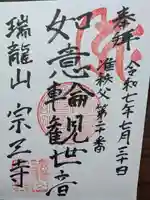 奉拝
令和七年七月三十日
准秩父第二十番
如意輪観世音
瑞龍山 宗三寺